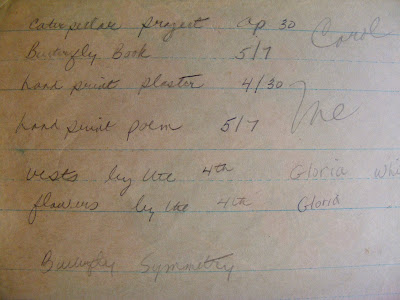 caterpillar project ap 30 Carol
Butterfly Book 5/7
hand print plaster 4/30
Me
hand print poem 5/7
vests by the 4th Gloria whi
flowers by the 4th Gloria
Butterfly Symmetry